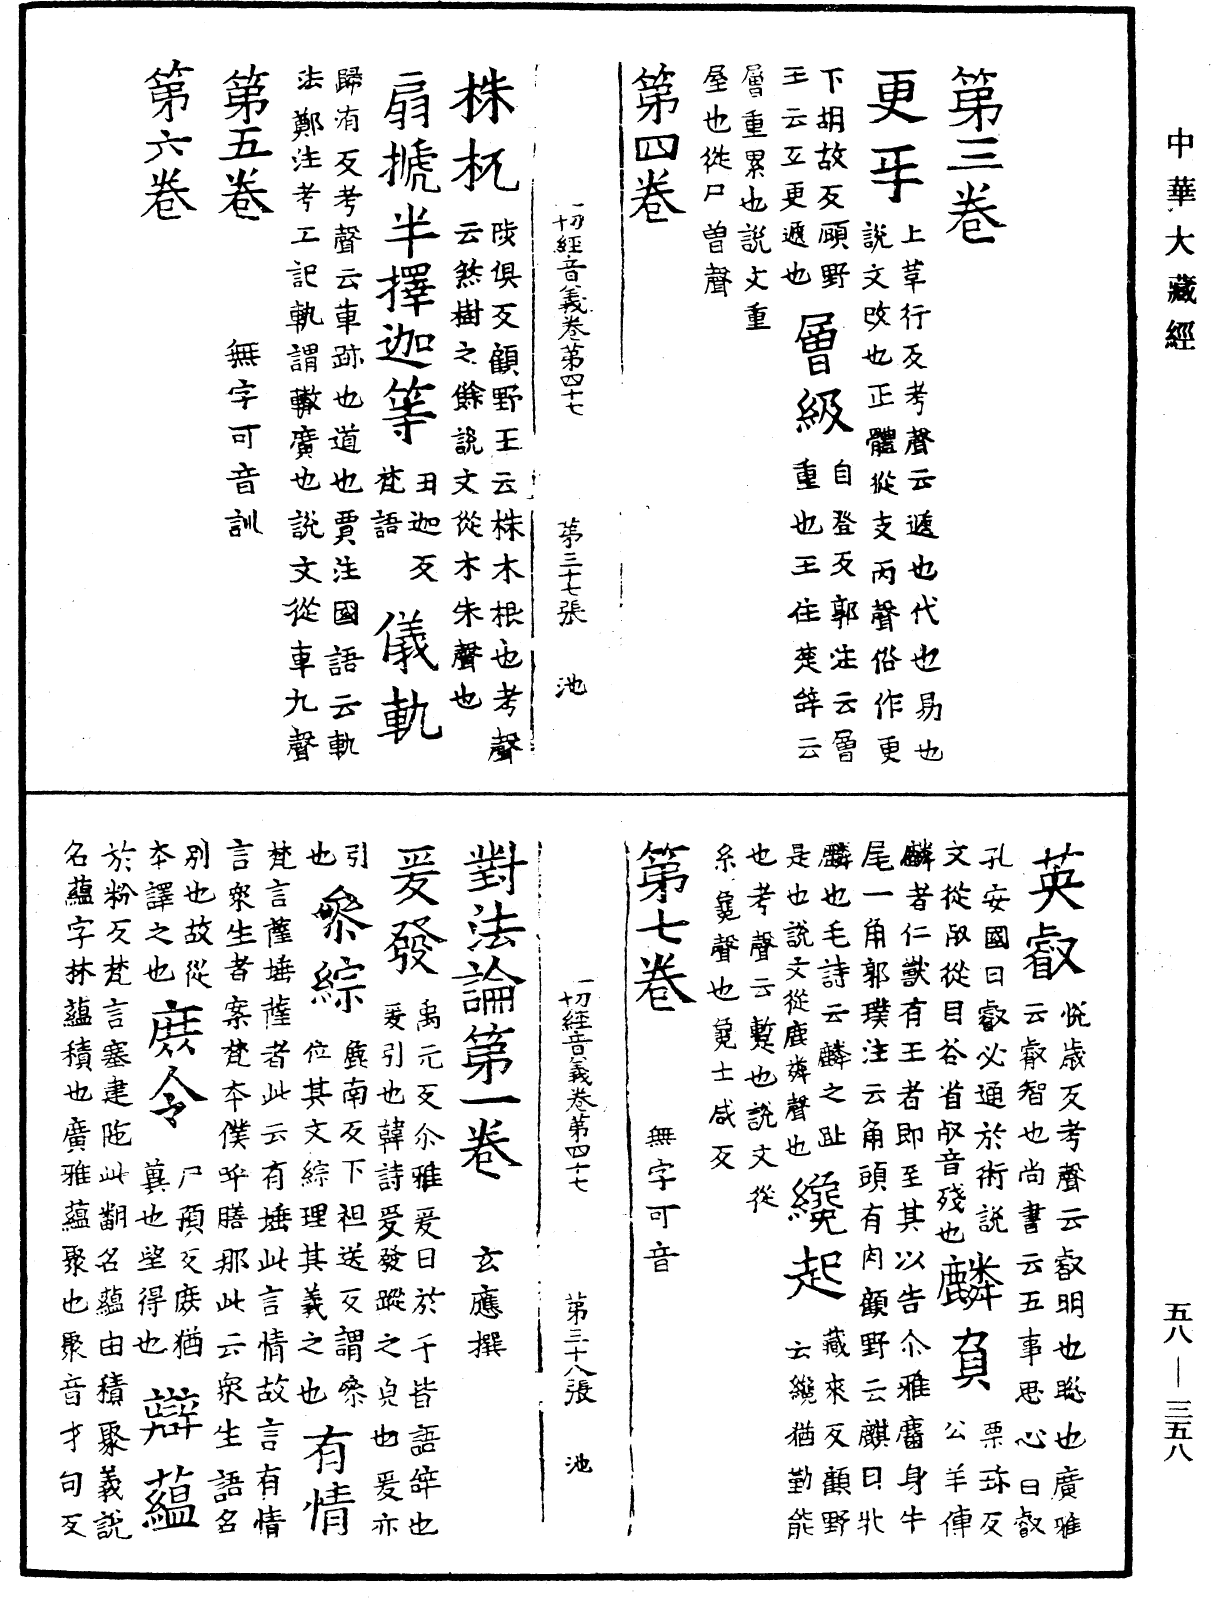 中華大藏經
第三卷
更㸦 上革行反考聲云遞也代也易也
說文改也正體從攴丙聲俗作更
下胡故反顧野
王云互更遞也 層級 自登反郭注云層
重也王注楚辭云
層重累也說文重
屋也從尸曽聲
第四卷
一切經音義卷第四十七 第三十七張 池
株杌 陟俱反顧野王云株木根也考聲
云煞樹之餘說文從木朱聲也
扇搋半擇迦等 丑迦反
梵語 儀軌
歸洧反考聲云車跡也道也賈注國語云軌
法鄭注考工記軌謂轍廣也說文從車九聲
第五卷 無字可音訓
第六卷
英叡 悅歲反考聲云叡明也聡也廣雅
云叡智也尚書云五事思心曰叡
孔安國曰叡必通於術說
文從㕡從目谷省㕡音殘也 麟㒵 栗珎反
公羊傳
麟者仁獸有王者即至其以告尒雅麕身牛
尾一角郭璞注云角頭有肉顧野云麒曰牝
麟也毛詩云麟之趾
是也說文從鹿粦聲也 纔起 藏來反顧野
云纔猶勤能
也考聲云蹔也說文從
糸毚聲也毚士咸反
第七卷 無字可音
一切經音義卷第四十七 第三十八張 池
對法論第一卷 玄應撰
爰發 禹元反尒雅爰曰於于皆語辝也
爰引也韓詩爰發蹤之皃也爰亦
引
也 叅綜 麁南反下祖送反謂叅
位其文綜理其義之也 有情
梵言薩埵薩者此云有埵此言情故言有情
言衆生者案梵本僕呼膳那此云衆生語名
別也故從
本譯之也 庶令 尸預反庶猶
冀也望得也 辯蘊
於粉反梵言塞建陁此翻名蘊由積聚義說
名蘊字林蘊積也廣雅蘊聚也聚音才句反
五八—三五八